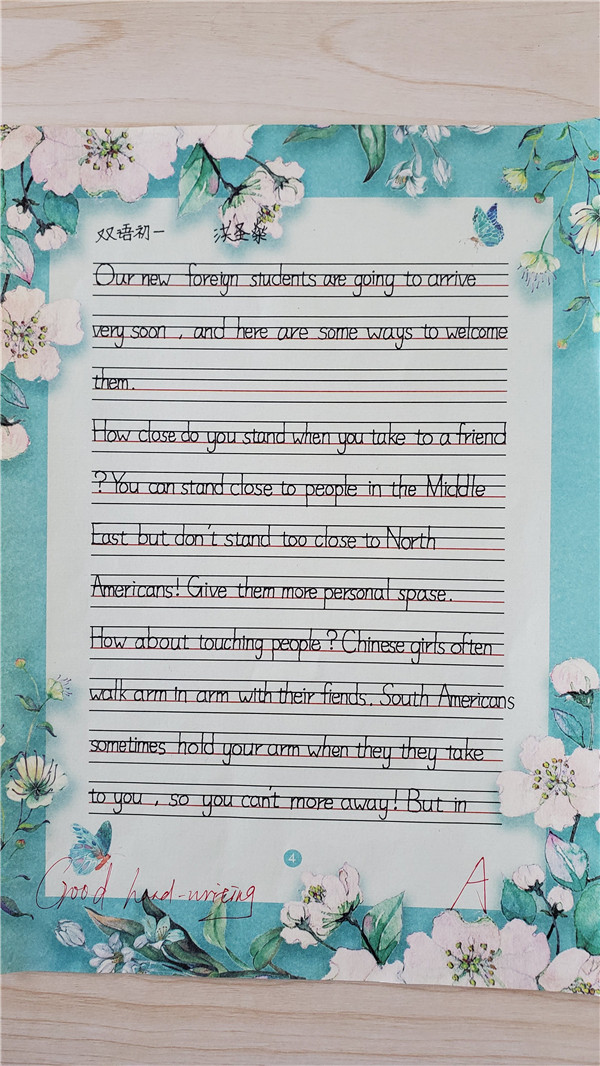 双语初一 洪圣燊
Our new foreign students are going to arrive
very soon , and here are some ways to welcome
them.
How close do you stand when you take to a friend
? You can stand close to people in the Middle
East but don't stand too close to North
Americans! Give them more personal spase.
How about touching people? Chinese girls often
walk arm in arm with their fiends. South Americans
sometimes hold your arm when they they take
to you , so you can't more away! But in
4
Good hand-writing A